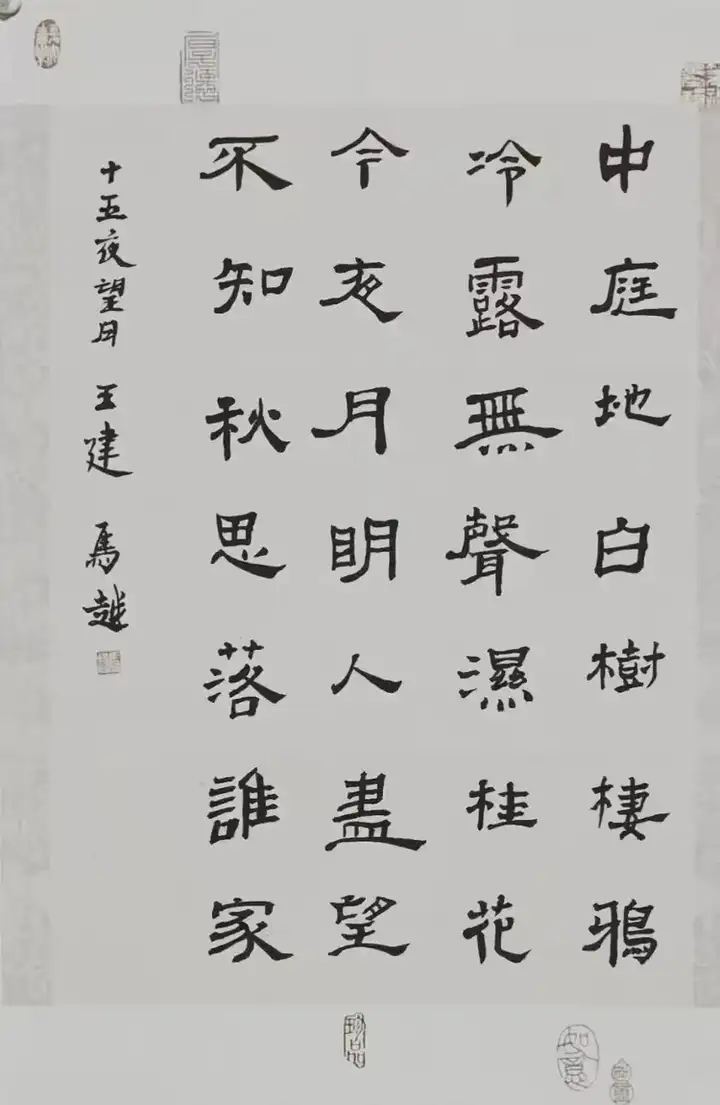 中庭地白樹棲鴉
冷露無聲濕桂花
今夜月明人盡望
不知秋思落誰家
十五夜望月 王建 馬越
如意
珍品